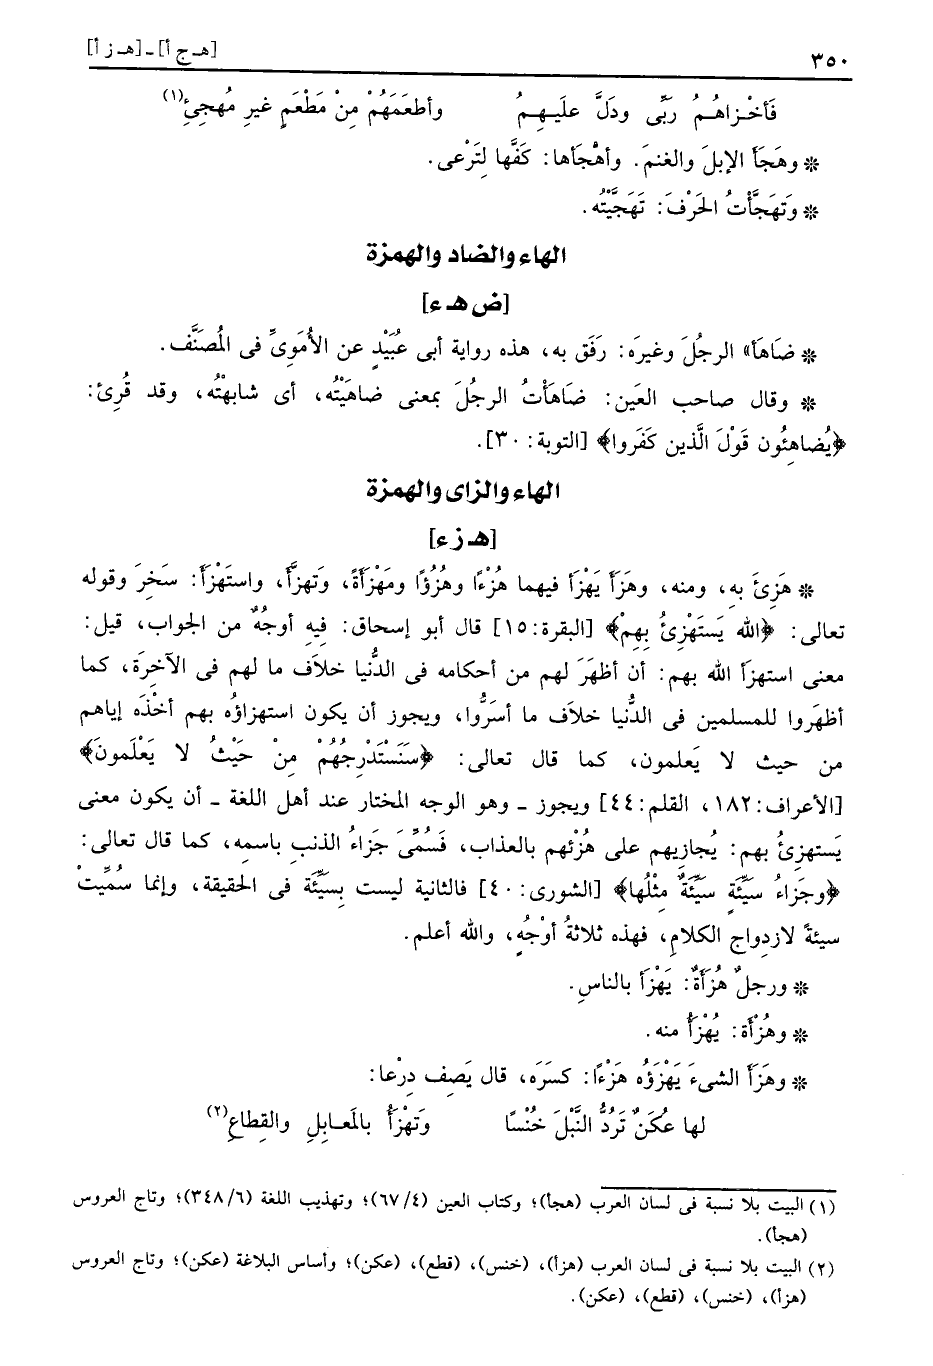 ٣٥٠
[هـ ج أ] ـ [هـ ز أ]
فَأخْـزاهُـمُ رَبِّى ودَلَّ علَيـهِـمُ وأطعَمَهُمْ مِنْ مَطْعَمٍ غيرِ مُهجِئِ(١)
* وهَجَأ الإبلَ والغنمَ. وأهْجَأها: كَفَّها لتَرْعى.
* وَتهَجَّأتُ الحَرْفَ: تَهَجَّيْتُه.
الهاء والضاد والهمزة
[ض هـ ء]
* ضَاهَأ» الرجلُ وغيرَه: رَفَق به، هذه رواية أبى عُبَيْدٍ عن الأُمَوِىِّ فى المُصَنَّف.
* وقال صاحب العَين: ضَاهَأْتُ الرجُلَ بمعنى ضاهَيْتُه، أى شابهتْه، وقد قُرِئ:
﴿يُضاهِئُون قَوْلَ الَّذين كَفَروا﴾ [التوبة: ٣٠].
الهاء والزاى والهمزة
[هـ ز ء]
* هَزِئَ بِه، ومنه، وهَزَأ يَهْزَأ فيهما هُزْءًا وهُزُؤًا ومَهْزَأةً، وَتهزَّأ، واستَهْزَأ: سَخِرَ وقوله
تعالى: ﴿الله يَستَهْزِئُ بِهِمْ﴾ [البقرة: ١٥] قال أبو إسحاق: فيه أوجُهٌ من الجواب، قيل:
معنى استهزَأ الله بهم: أن أظهَرَ لهم من أحكامه فى الدُّنيا خلاَف ما لهم فى الآخِرَة، كما
أظهَروا للمسلمين فى الدُّنيا خلاَف ما أسَرُّوا، ويجوز أن يكون استهزاؤُه بهم أخْذَه إياهم
من حيث لا يَعلمون، كما قال تعالى: ﴿سَنَسْتَدْرِجُهُمْ مِنْ حَيْثُ لا يَعْلَمونَ﴾
[الأعراف: ١٨٢، القلم: ٤٤] ويجوز ـ وهو الوجه المختار عند أهل اللغة ـ أن يكون معنى
يَستهزِئُ بهم: يُجازِيهم على هُزْئهم بالعذاب، فَسُمِّىَ جَزاءُ الذنبِ باسمِه، كما قال تعالى:
﴿وجَزاءُ سَيِّئَةٍ سَيِّئَةٌ مثْلُها﴾ [الشورى: ٤٠] فالثانية ليست بِسَيِّئَة فى الحقيقة، وإنما سُمِّيتْ
سيئةً لازدِواجِ الكلامِ، فهذه ثلاثةُ أوْجُهٍ، والله أعلم.
* ورجلٌ هُزَأَةٌ: يَهْزَأ بالناسِ.
* وهُزْأَة: يُهْزَأُ منه.
* وهَزَأ الشىءَ يَهْزَؤُه هَزْءًا: كسَرَه، قال يَصِف دِرْعا:
لها عُكَنٌ تَرُدُّ النَّبْلَ خُنْسًا وَتَهْزَأُ بالمَعـابِلِ والقِطاعِ(٢)
(١) البيت بلا نسبة فى لسان العرب (هجأ)؛ وكتاب العين (٦٧/٤)؛ وتهذيب اللغة (٣٤٨/٦)؛ وتاج العروس
(هجأ).
(٢) البيت بلا نسبة فى لسان العرب (هزأ)، (خنس)، (قطع)، (عكن)؛ وأساس البلاغة (عكن)؛ وتاج العروس
(هزأ)، (خنس)، (قطع)، (عكن).